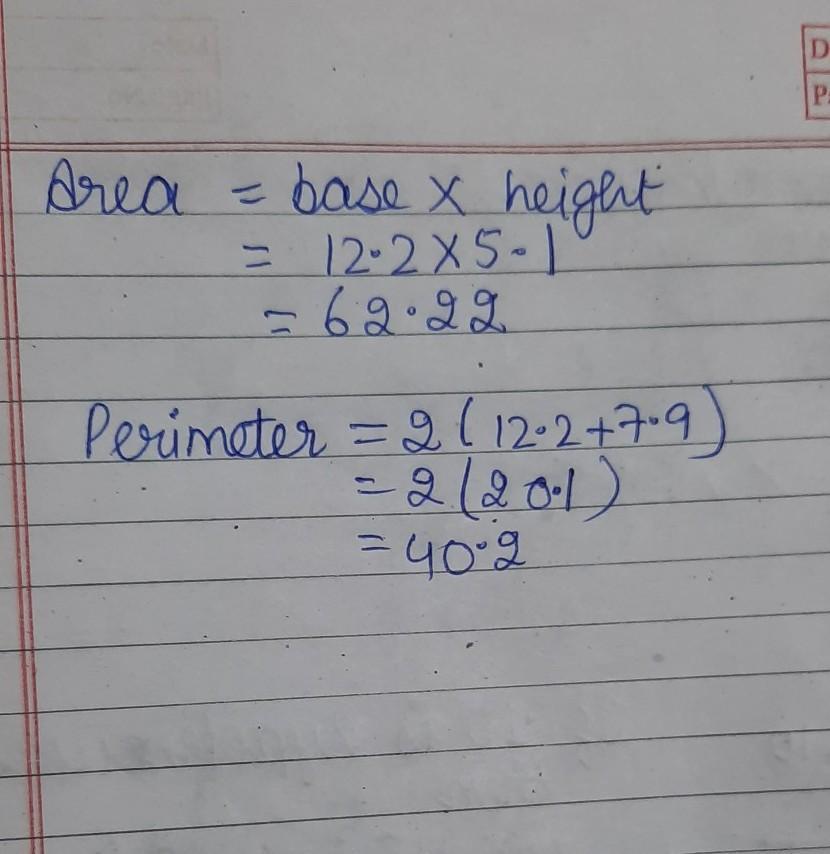 D
P.
Area = base × height
= 12.2 × 5.1
= 62.22
Perimeter = 2(12.2+7.9)
= 2(20.1)
= 40.2